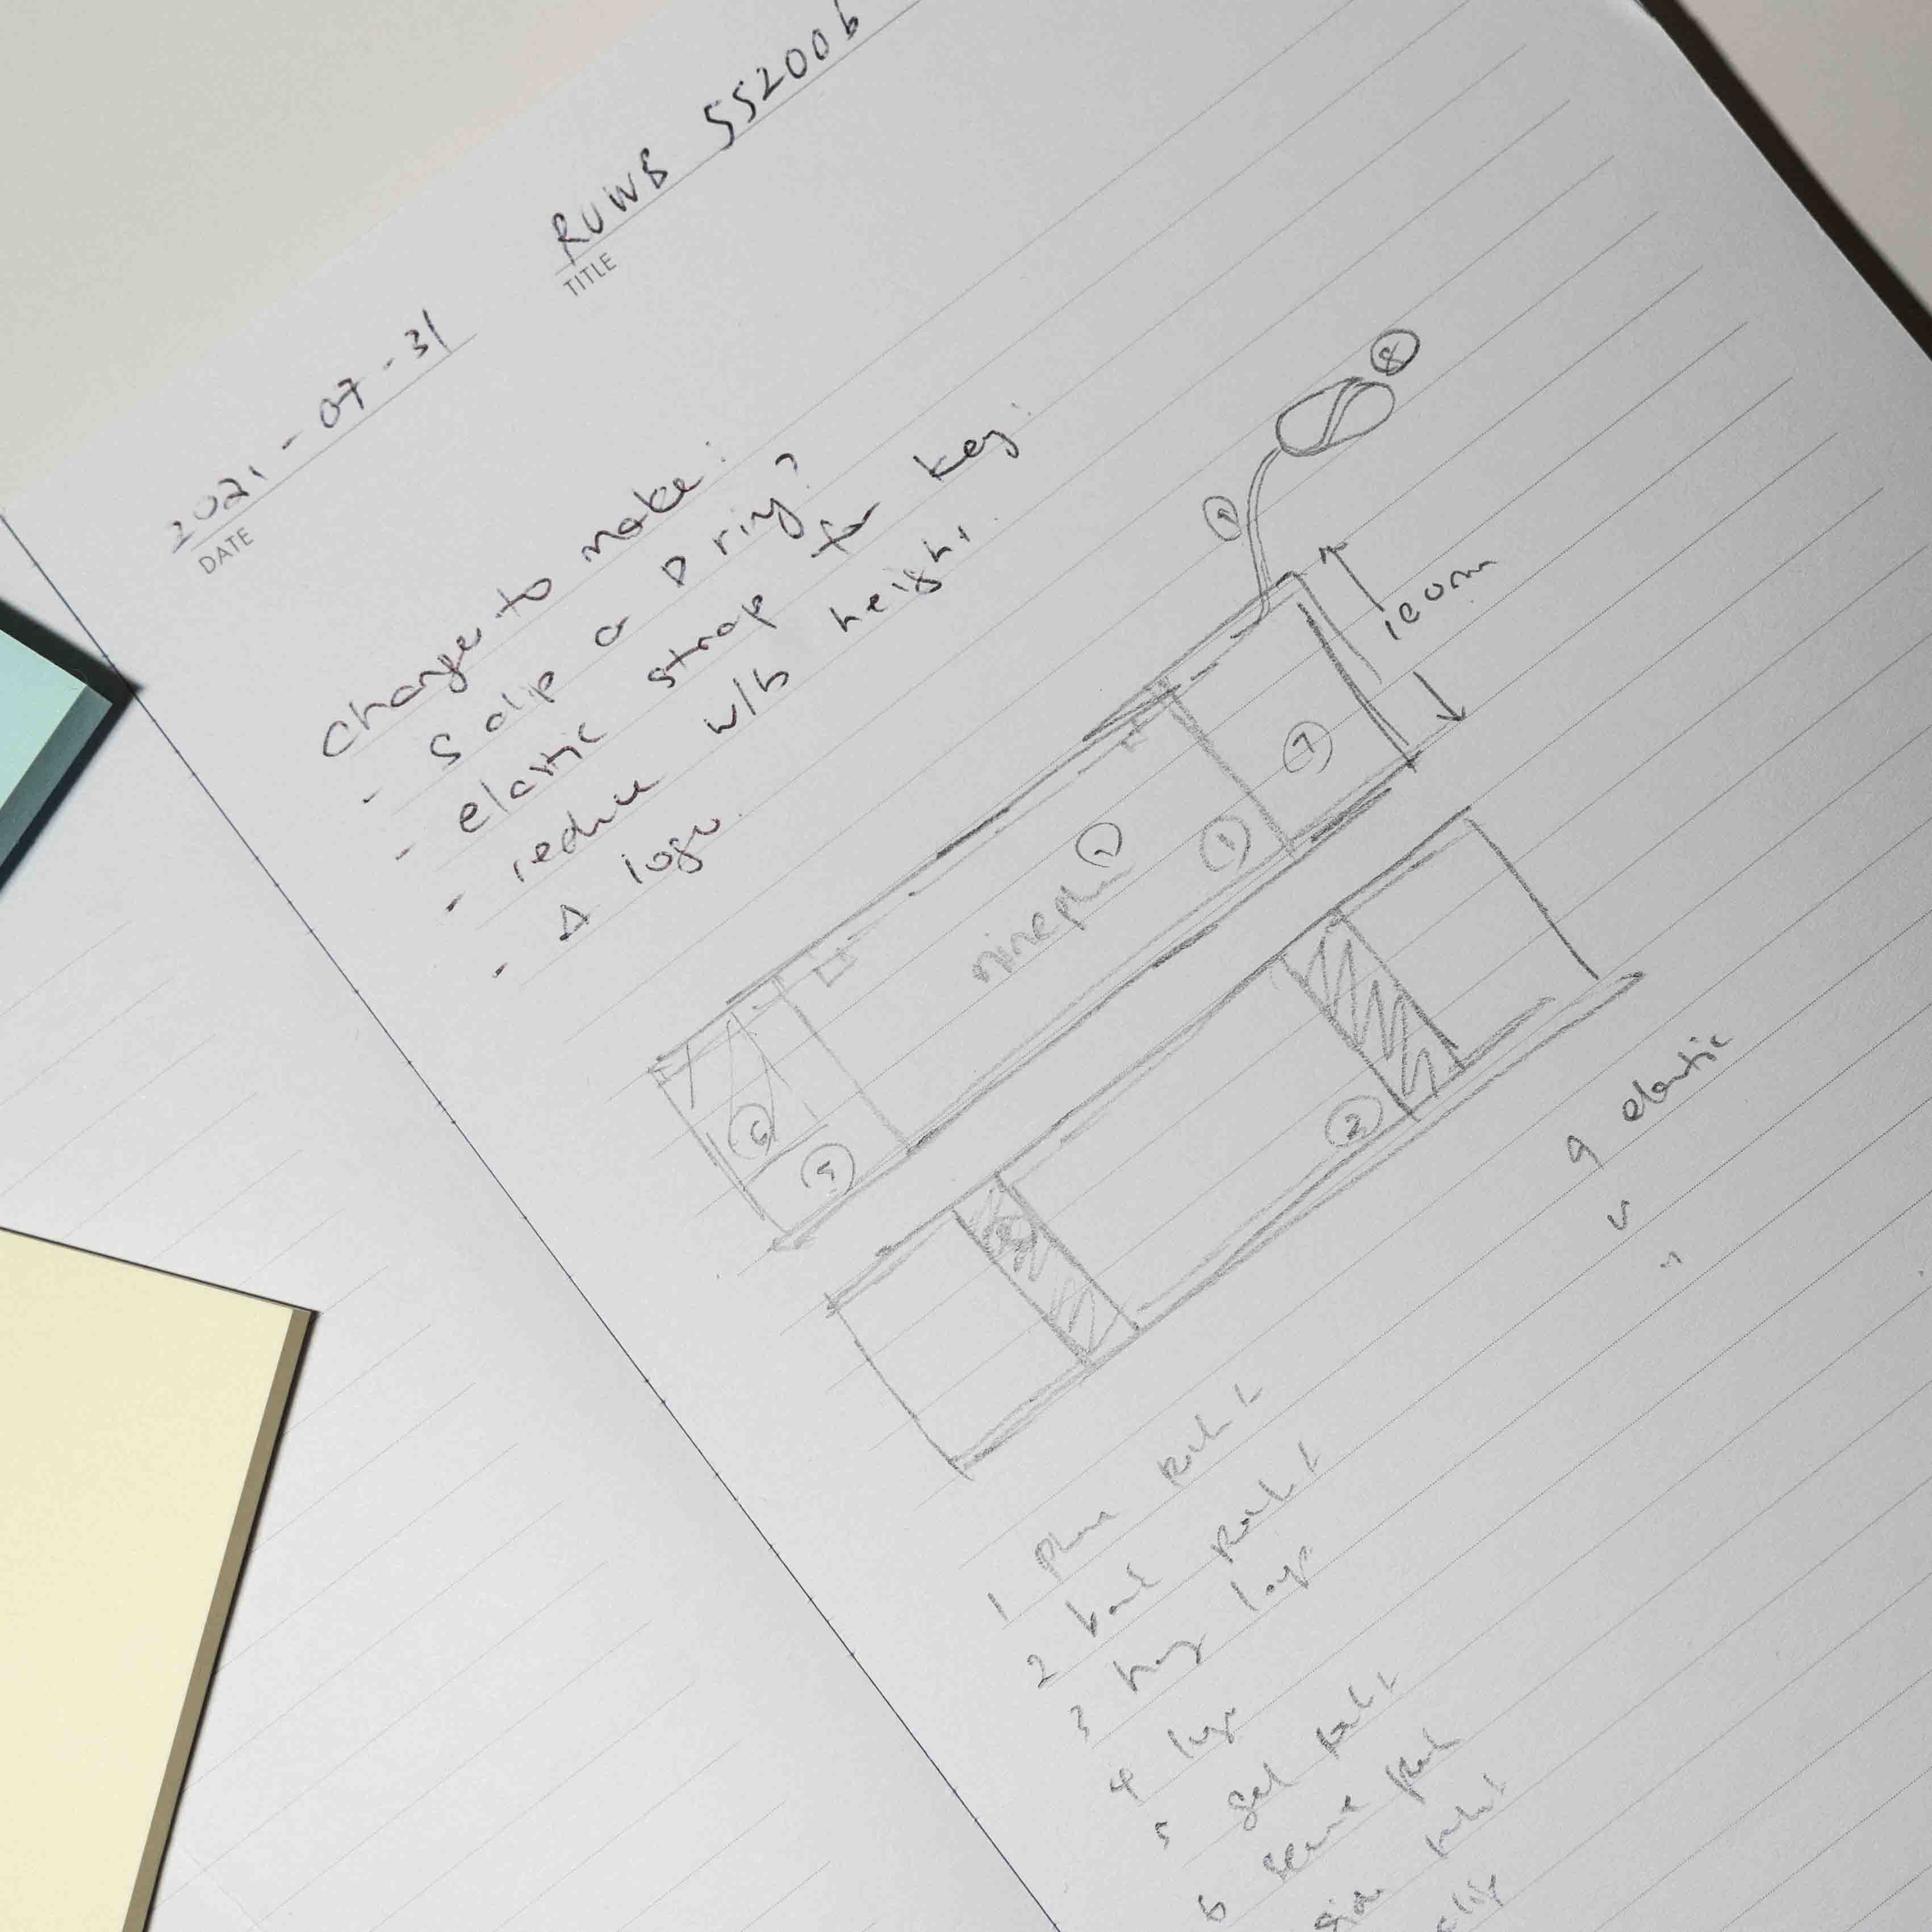 2021-07-31
DATE
RUWB SS2006
TITLE
Changes to make:
- S clip or D ring?
- elastic strap for key.
- reduce w/b height.
- Δ logo.
8
9
10cm
7
1
nineplus
6
5
2
9 elastic
1 phone pocket
2 back pocket
3 key loop
4 logo
5 gel pocket
6 secure pocket
side pocket
clip